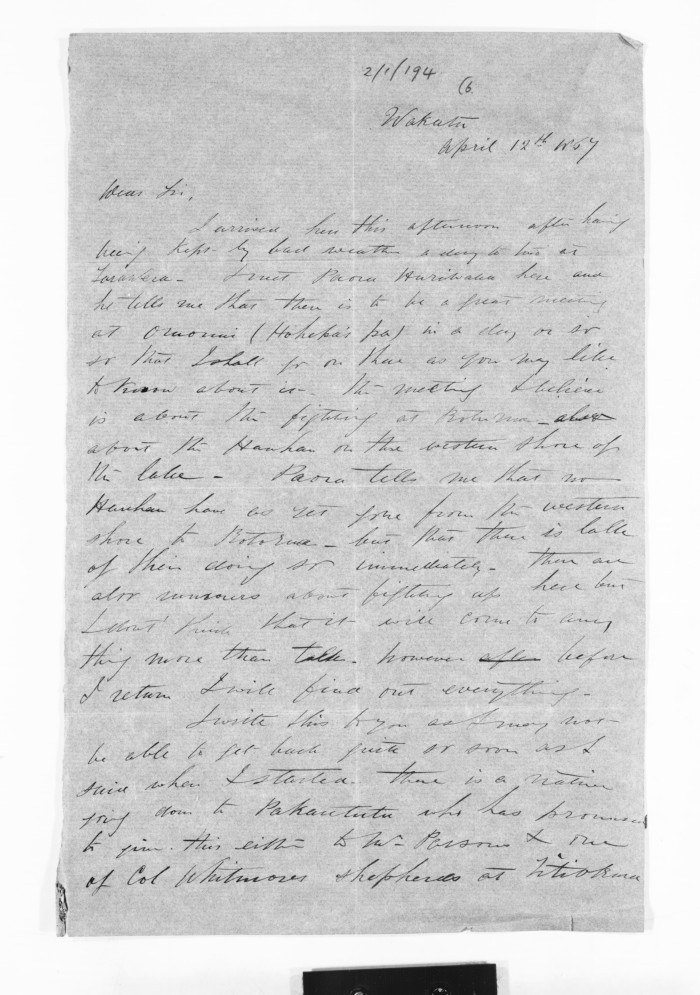 2/1/194
(6.
Wakatu
April 12th 1867
Dear Sir,
I arrived here this afternoon after having
being kept by bad weather a day or two at
Tarawera - I met Paora Hurihaka here and
he tells me that there is to be a great meeting
at Omomi (Hohepa's pa) in a day or so
so that I shall go on there as you may like
to know about it. The meeting I believe
is about the fighting at Rotorua - also
about the Hauhau on the western shore of
the lake - Paora tells me that no
Hauhau have as yet gone from the western
shore to Rotorua - but that there is talk
of their doing so immediately - there are
also rumours about fighting up here but
I don't think that it will come to any
thing more than talk - however before
I return I will find out everything -
I write this to you as I may not
be able to get back quite so soon as I
said when I started there is a native
going down to Pakaututu who has promised
to give this either to Mr Parsons & one
of Col Whitmores shepherds at Titiokura